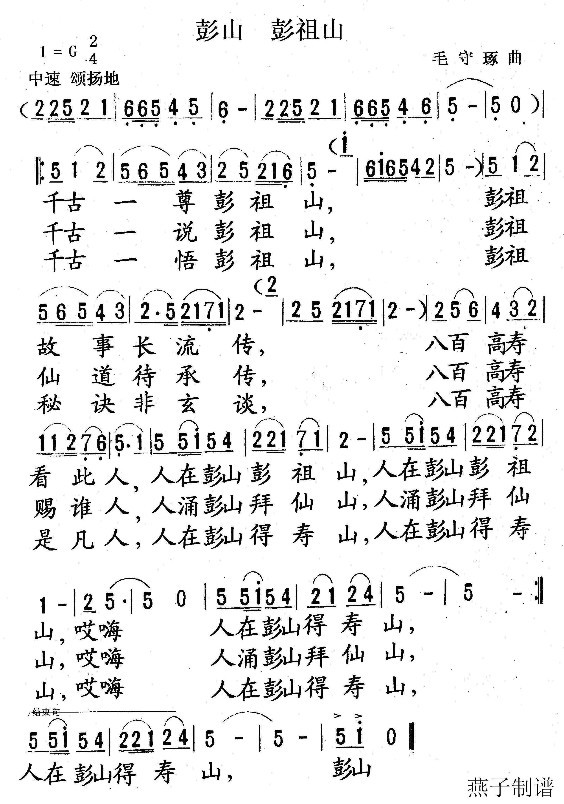 彭山 彭祖山
1=G 2/4
毛守琢 曲
中速 颂扬地
(22521|66545|6-|22521|665456|5-|50)
(i
512|56543|25216|5-|6i6542|5-)|512
千古一尊彭祖山, 彭祖
千古一说彭祖山, 彭祖
千古一悟彭祖山, 彭祖
(2
56543|2·52171|2-|252171|2-)|256|432
故事长流传, 八百高寿
仙道待承传, 八百高寿
秘诀非玄谈, 八百高寿
11276|5·1|55i54|22171|2-|55i54|22172
看此人,人在彭山彭祖山,人在彭山彭祖
赐谁人,人涌彭山拜仙山,人涌彭山拜仙
是凡人,人在彭山得寿山,人在彭山得寿
1-|25·|50|55i54|2124|5-|5-:|
山,哎嗨 人在彭山得寿山,
山,哎嗨 人涌彭山拜仙山,
山,哎嗨 人在彭山得寿山,
结束句
55i54|22124|5-|5-|5i0|
人在彭山得寿山, 彭山
燕子制谱